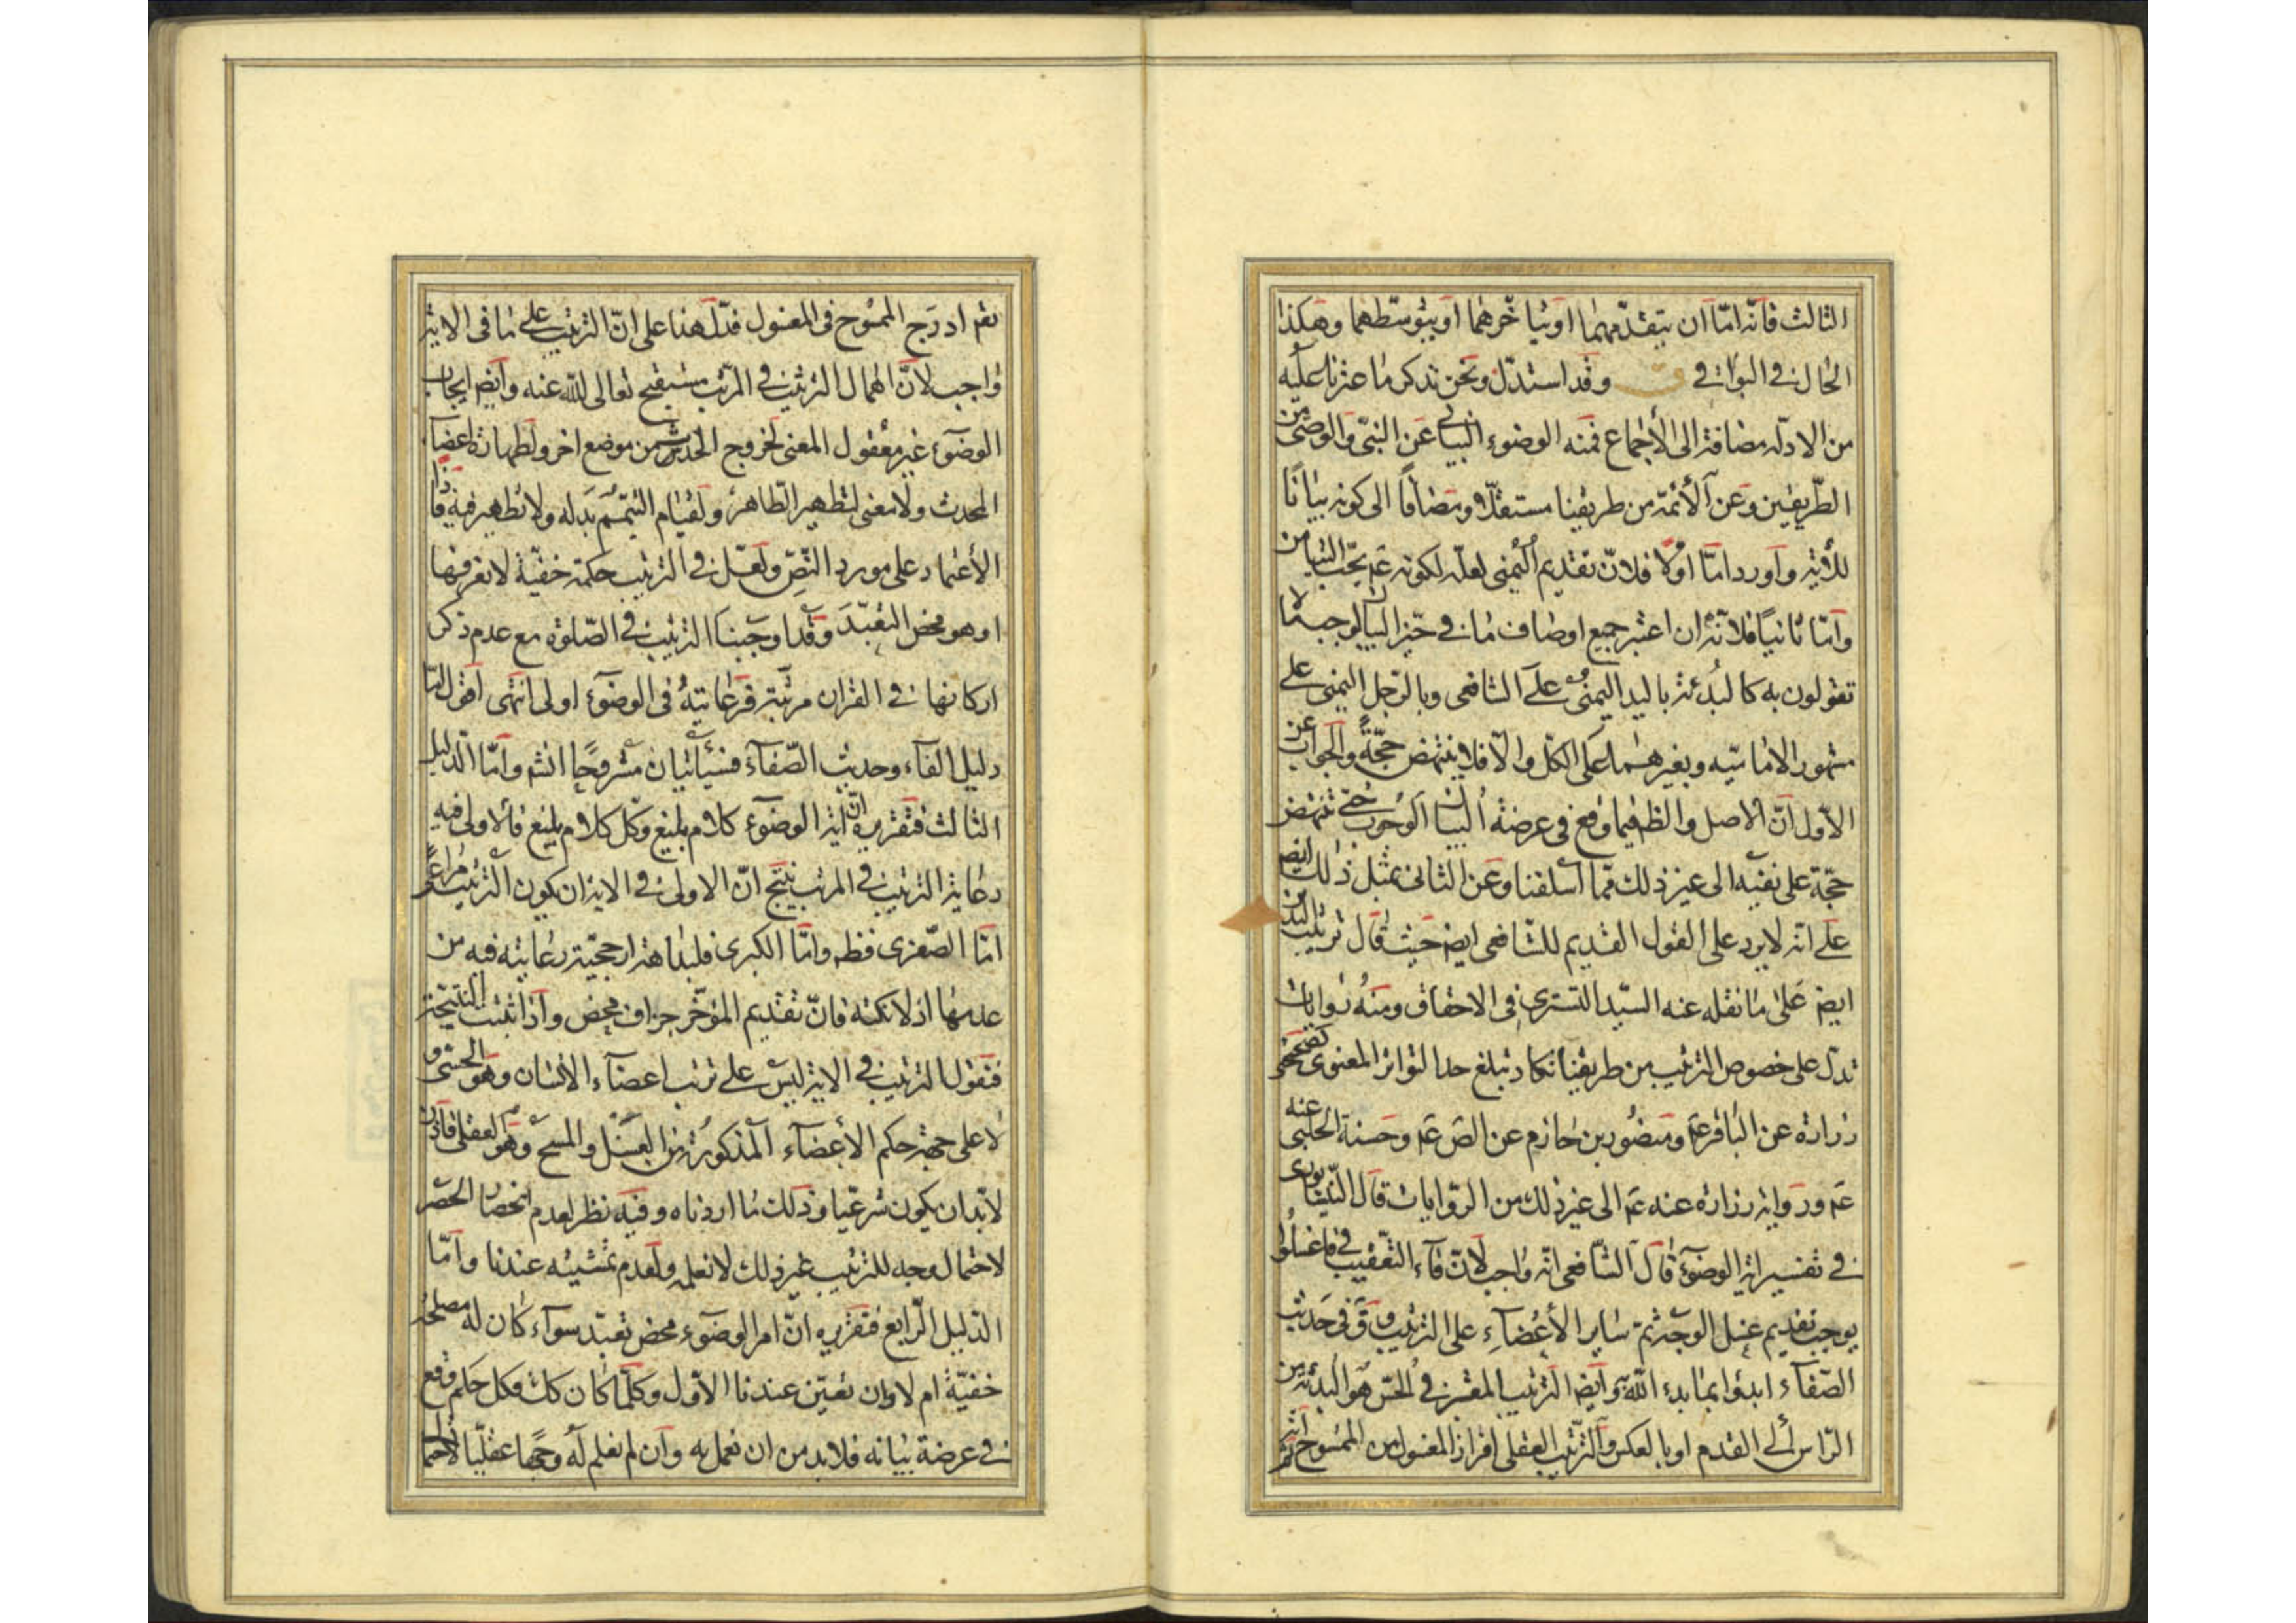 الثالث فانّه امّا ان يتقدّمهما او يتاخّرهما او يتوسّطهما وهكذا
الحال في البواقي وقد استدلّ ونحن نذكر ما عثرنا عليه
من الادلّه مضافة الى الأجماع فمنه الوضوء البياني عن النبيّ والوصىّ من
الطّريقين وعن الأئمّة من طريقنا مستقلّا ومضافاً الى كونه بياناً
للأية واورد امّا اوّلا فلانّ تقديم اليُمنى لعلّه لكونه عم يحبّ التيامن
وامّا ثانياً فلانّه ان اعتبر جميع اوصاف ما في حيّز البيان لوجب ما لا
تقولون به كالبُدئة باليد اليمنى على الشافعى وبالرّجل اليمنى على
مشهور الاماميّه وبغيرهما على الكلّ والّا فلا ينتهض حجّةً والجواب عن
الاوّل انّ الاصل والظ فيما وقع فى عرضة البيان الوجوب حتّى تنهض
حجّة على نفيه الى غير ذلك ممّا اسلفنا وعن الثانى بمثل ذلك ايضم
على انّه لا يرد على القول القديم للشافعى ايضم حيث قال ترتيب البدن
ايضم على ما نقله عنه السيّد التسترى فى الاحقاق ومنه روايات
تدلّ على خصوص الترتيب من طريقنا تكاد تبلغ حد التواتر المعنوى كصحيحتى
زرارة عن الباقر عم ومنصور بن حازم عن الص عم وحسنة الحلبى عنه
عم ورواية زرارة عنه عم الى غير ذلك من الرّوايات قال النّيشابورى
في تفسير اية الوضوء قال الشّافعى انّه واجب لانّ فاء التّعقيب فى فاغسلوا
يوجب تقديم غسل الوجه ثمّ ساير الأعضاء على الترتيب وفى حديث
الصّفاء ابدؤا بما بدء اللّه به وايضم الترتيب المعتبر في الحسّ هو البدئة من
الرّاس الى القدم او بالعكس والترتيب العقلى افراز المغسول من الممسوح
ادرج الممسوح فى المغسول فدلّ هذا على انّ الترتيب على ما فى الاية
واجب لانّ اهمال الترتيب في المرتّب مستقبح تعالى اللّه عنه وايضم ايجاب
الوضوء غير معقول المعنى لخروج الحدث من موضع اخر ولطهارة اعضاء
المحدث ولا معنى لتطهير الطّاهر ولقيام التيمّم بدله ولا تطهير فيه فاذا
الأعتماد على مورد النّصّ ولعلّ في الترتيب حكمة خفيّة لا نعرفها
او هو محض التعبّد وقد اوجبنا الترتيب في الصّلوة مع عدم ذكر
اركانها في القران مرتّبة فرعايته فى الوضوء اولى انتهى اقول امّا
دليل الفاء وحديث الصّفاء فسيأتيان مشروحًا انشم وامّا الدّليل
الثالث فتقريره انّ اية الوضوء كلام بليغ وكلّ كلام بليغ فالاولى فيه
رعاية الترتيب في المرتب ينتج انّ الاولى في الاية ان يكون الترتيب مراعًى
امّا الصّغرى فظم وامّا الكبرى فلبداهة ارجحيّة رعايته فيه من
عدمها اذ لا نكتة فانّ تقديم المؤخّر جزاف محض واذا ثبتت النتيجة
فنقول الترتيب في الاية ليس على ترتب اعضاء الانسان وهو الحسّى و
لا على جهة حكم الأعضاء المذكورة من الغسل والمسح وهو العقلى فاذن
لا بدّ ان يكون شرعيّا وذلك ما اردناه وفيه نظر لعدم انحصار الحصر
لاحتمال وجه للترتيب غير ذلك لا نعلمه ولعدم تمشيته عندنا وامّا
الدّليل الرّابع فتقريره انّ امر الوضوء محض تعبّد سواء كان له مصلحة
خفيّة ام لا وان تعيّن عندنا الاوّل وكلّما كان كك فكل حكم وقع
في عرضة بيانه فلا بد من ان نعمل به وان لم نعلم له وجهًا عقليّا